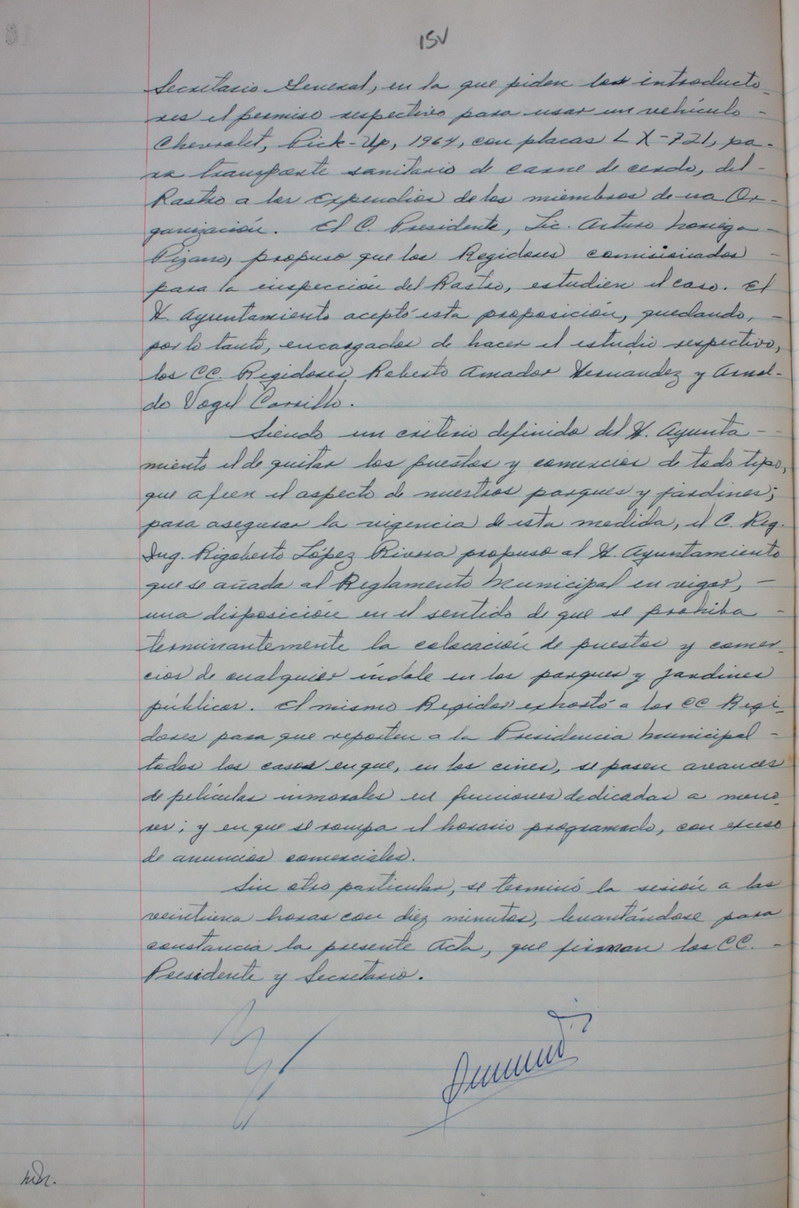 15V
Secretario General, en la que piden los introducto-
res el permiso respectivo para usar un vehículo -
Chevrolet, Pick-Up, 1964, con placas LX-721, pa-
ra transporte sanitario de carne de cerdo, del -
Rastro a los expendios de los miembros de una Or-
ganización. El C. Presidente, Lic. Arturo Noriega -
Pizano, propuso que los Regidores comisionados -
para la inspección del Rastro, estudien el caso. El
H. Ayuntamiento aceptó esta proposición, quedando, -
por lo tanto, encargados de hacer el estudio respectivo,
los CC. Regidores Roberto Amador Hernández y Arnol-
do Vogel Carrillo.
Siendo un criterio definido del H. Ayunta -
miento el de quitar los puestos y comercios de todo tipo,
que afeen el aspecto de nuestros parques y jardines;
para asegurar la vigencia de esta medida, el C. Reg.
Ing. Rigoberto López Rivera propuso al H. Ayuntamiento
que se añada al Reglamento Municipal en vigor, -
una disposición en el sentido de que se prohiba -
terminantemente la colocación de puestos y comer-
cios de cualquier índole en los parques y jardines
públicos. El mismo Regidor exhortó a los CC Regi-
dores para que reporten a la Presidencia Municipal -
todos los casos en que, en los cines, se pasen avances
de películas inmorales en funciones dedicadas a meno-
res; y en que se rompa el horario programado, con exceso
de anuncios comerciales.
Sin otro particular, se terminó la sesión a las
veintiuna horas con diez minutos, levantándose para
constancia la presente Acta, que firman los CC. -
Presidente y Secretario.